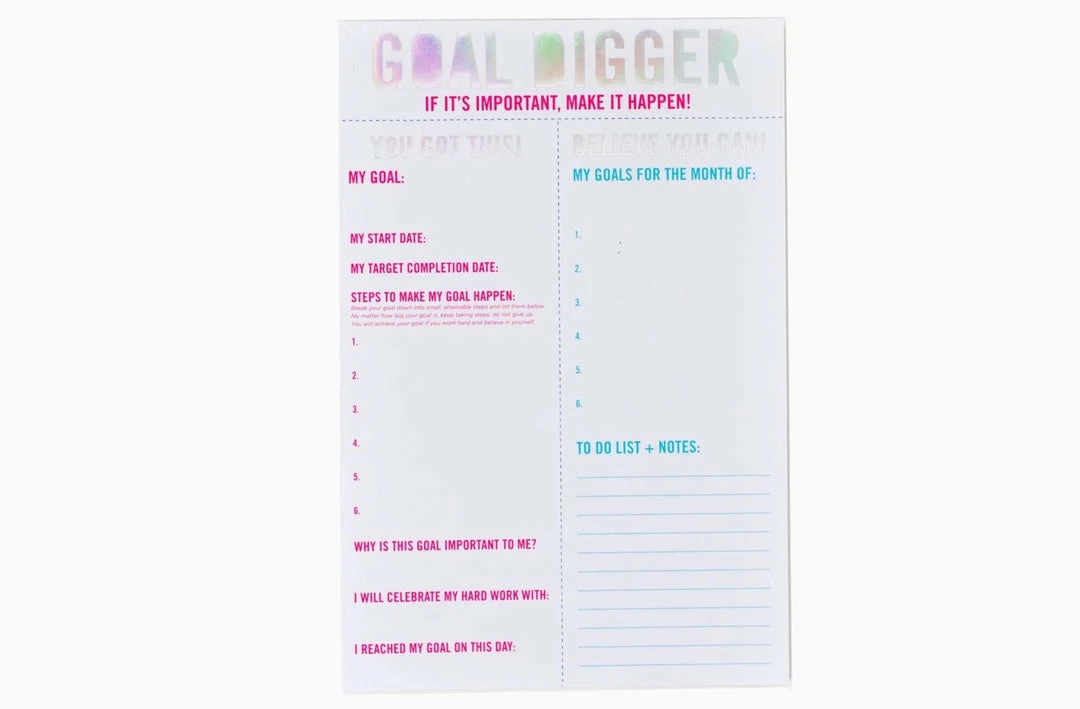 GOAL DIGGER
IF IT'S IMPORTANT, MAKE IT HAPPEN!
YOU GOT THIS!
MY GOAL:
MY START DATE:
MY TARGET COMPLETION DATE:
STEPS TO MAKE MY GOAL HAPPEN:
Break your goal down into small, attainable steps and list them below.
No matter how big your goal is, keep taking steps, do not give up.
You will achieve your goal if you work hard and believe in yourself.
1.
2.
3.
4.
5.
6.
WHY IS THIS GOAL IMPORTANT TO ME?
I WILL CELEBRATE MY HARD WORK WITH:
I REACHED MY GOAL ON THIS DAY:
BELIEVE YOU CAN!
MY GOALS FOR THE MONTH OF:
1.
2.
3.
4.
5.
6.
TO DO LIST + NOTES: